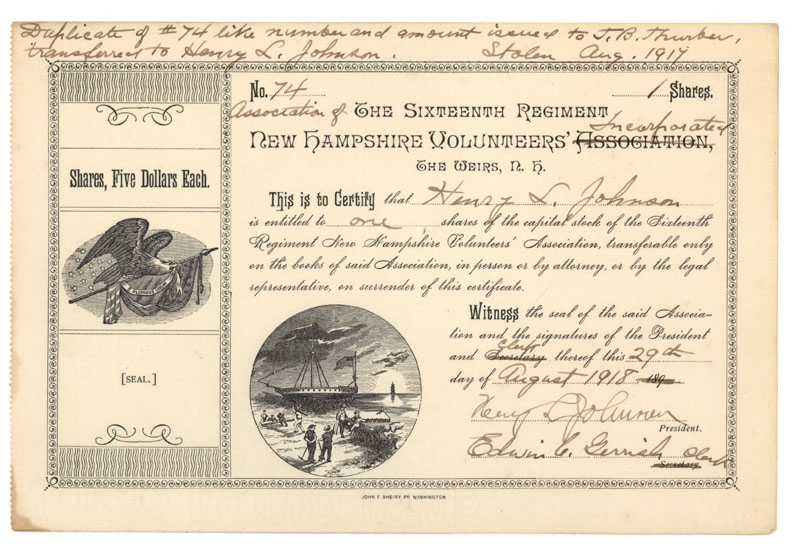 Duplicate of #74 like number and amount issued to J. B. Thurber,
transferred to Henry L. Johnson. Stolen Aug. 1917
No. 74 1 Shares.
Association of THE SIXTEENTH REGIMENT
Incorporated
NEW HAMPSHIRE VOLUNTEERS' ASSOCIATION,
THE WEIRS, N. H.
Shares, Five Dollars Each.
This is to Certify that Henry L. Johnson
is entitled to one shares of the capital stock of the Sixteenth
Regiment New Hampshire Volunteers' Association, transferable only
on the books of said Association, in person or by attorney, or by the legal
representative, on surrender of this certificate.
Witness the seal of the said Associa-
tion and the signatures of the President
Clerk
and Secretary thereof this 29th
day of August 1918 189
[SEAL.]
Henry L Johnson
President.
Edwin C. Gerrish Clerk
Secretary.
JOHN F SHEIRY PR WASHINGTON